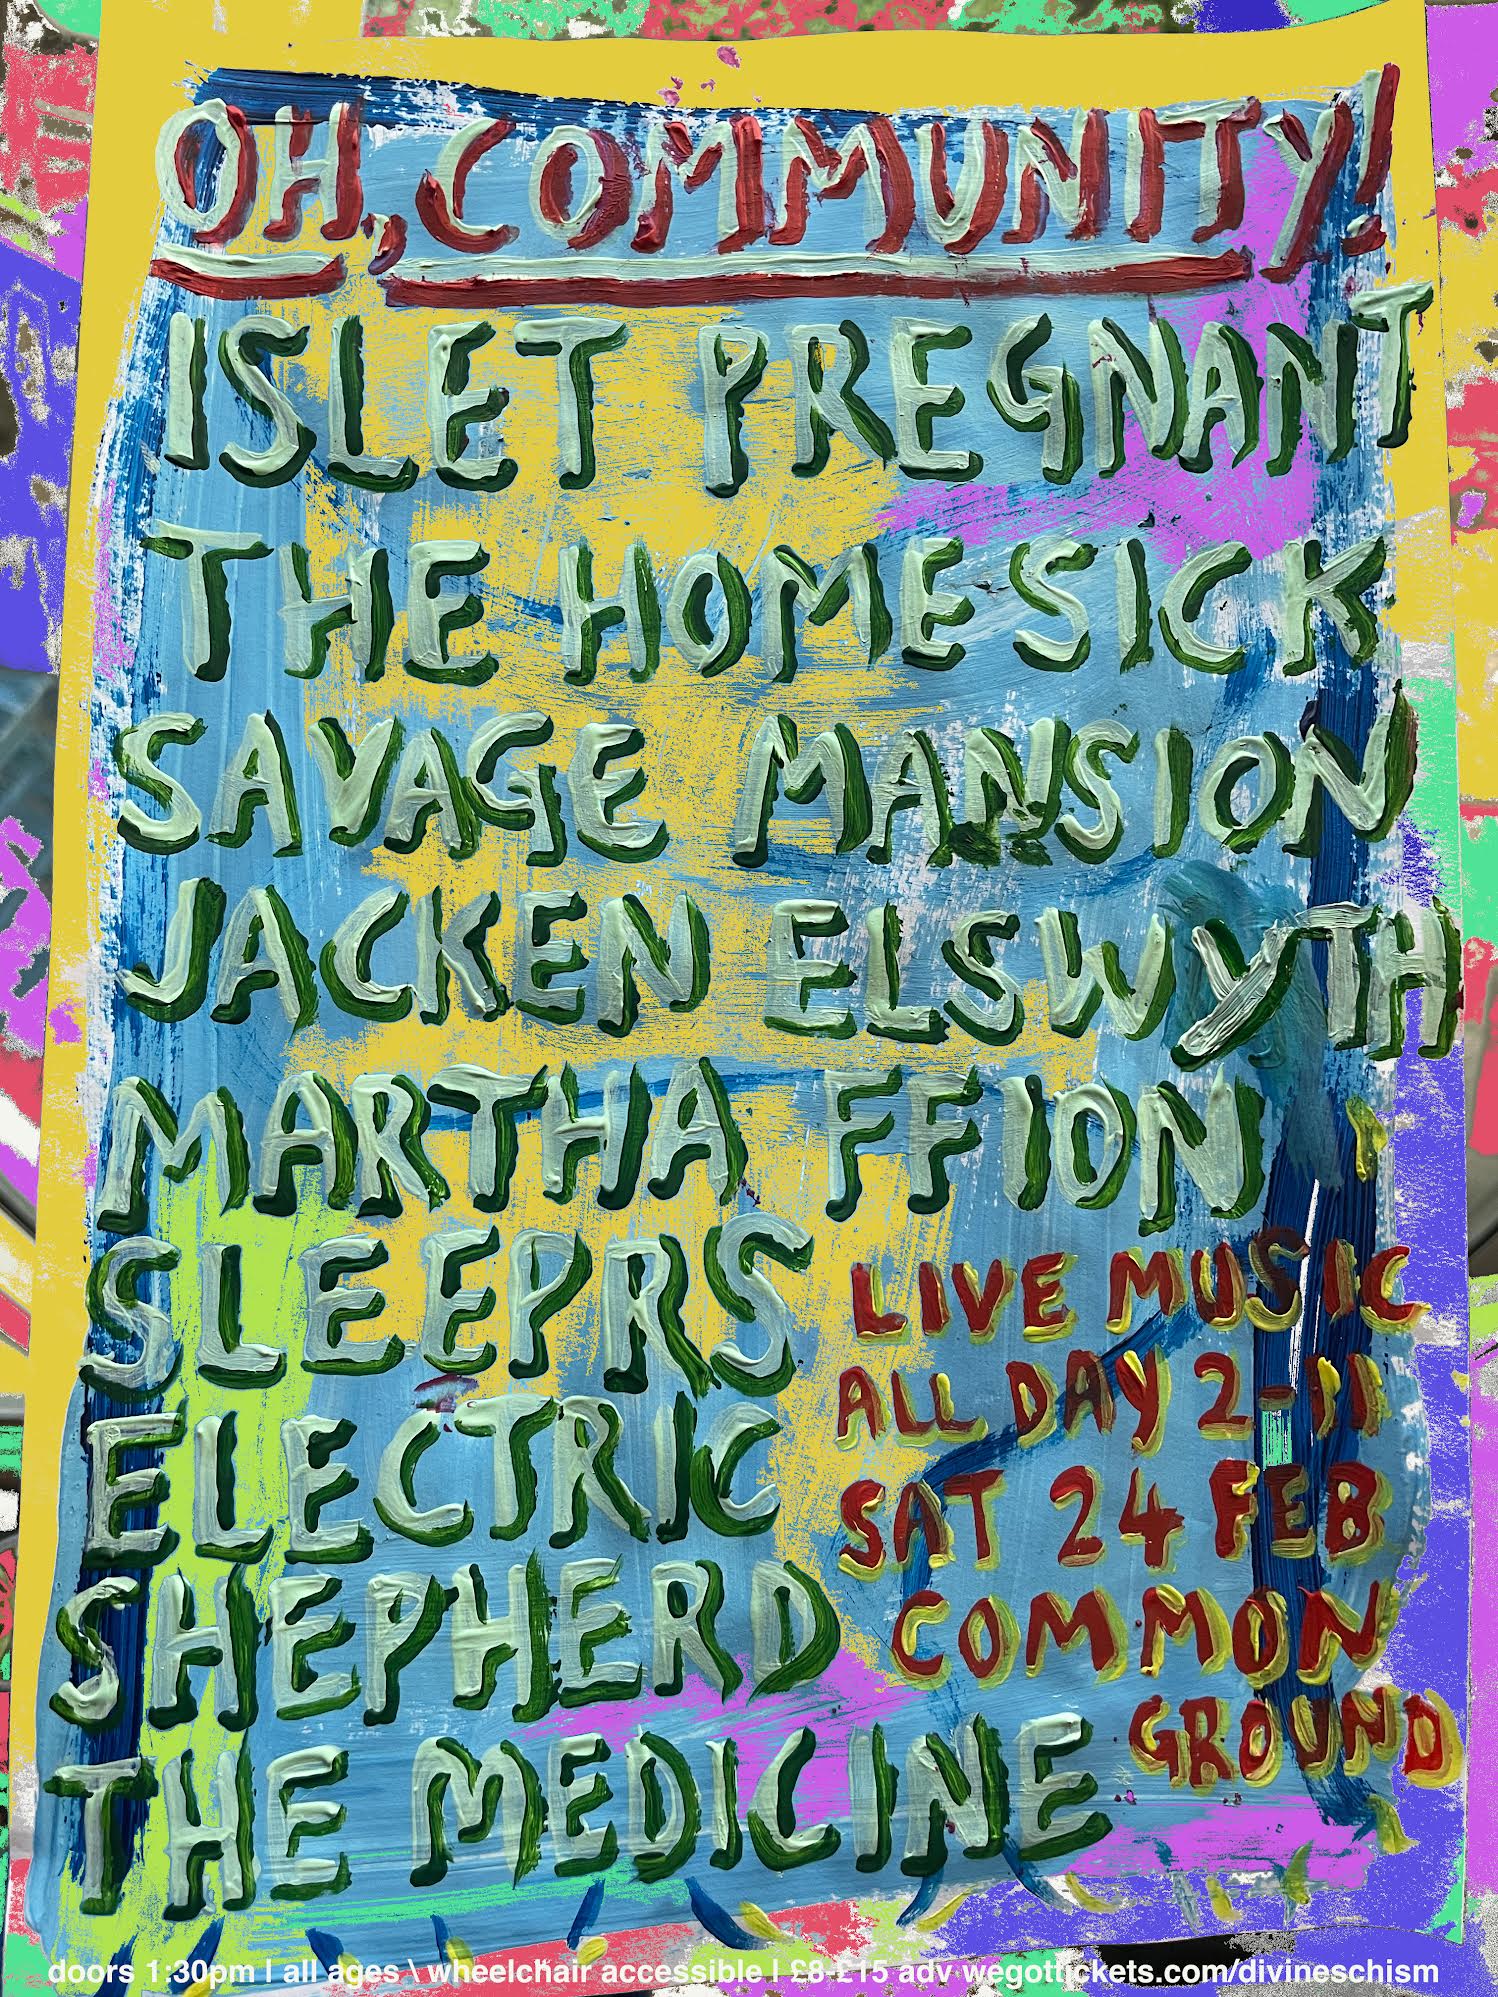 OH, COMMUNITY!
ISLET PREGNANT
THE HOMESICK
SAVAGE MANSION
JACKEN ELSWYTH
MARTHA FFION
SLEEPRS
ELECTRIC
SHEPHERD
THE MEDICINE
LIVE MUSIC
ALL DAY 2-11
SAT 24 FEB
COMMON
GROUND
doors 1:30pm | all ages \ wheelchair accessible | £8-£15 adv wegottickets.com/divineschism